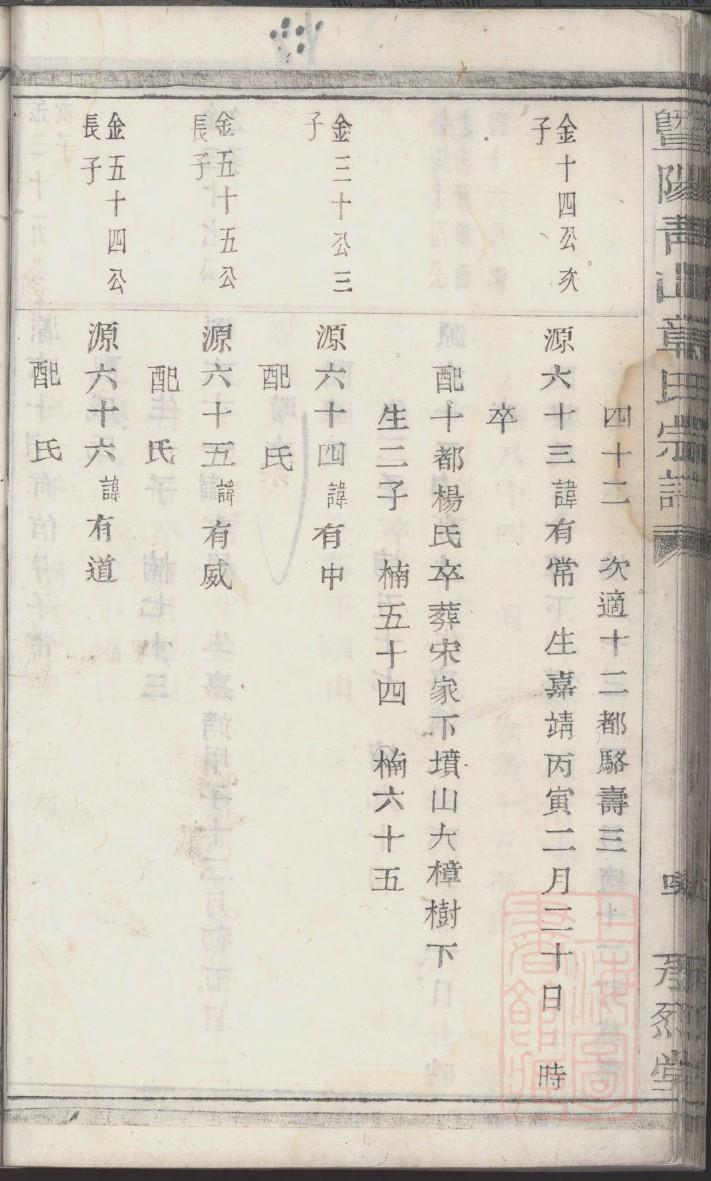 暨陽青山章氏宗譜
四十二　次適十二都駱壽三
金十四公次子
源六十三諱有常　生嘉靖丙寅二月二十日　時
卒
配十都楊氏卒葬宋家下墳山大樟樹下
生二子　楠五十四　楠六十五
金三十公三子
源六十四諱有中
配　氏
金五十五公長子
源六十五諱有威
配　氏
金五十四公長子
源六十六諱有道
配　氏